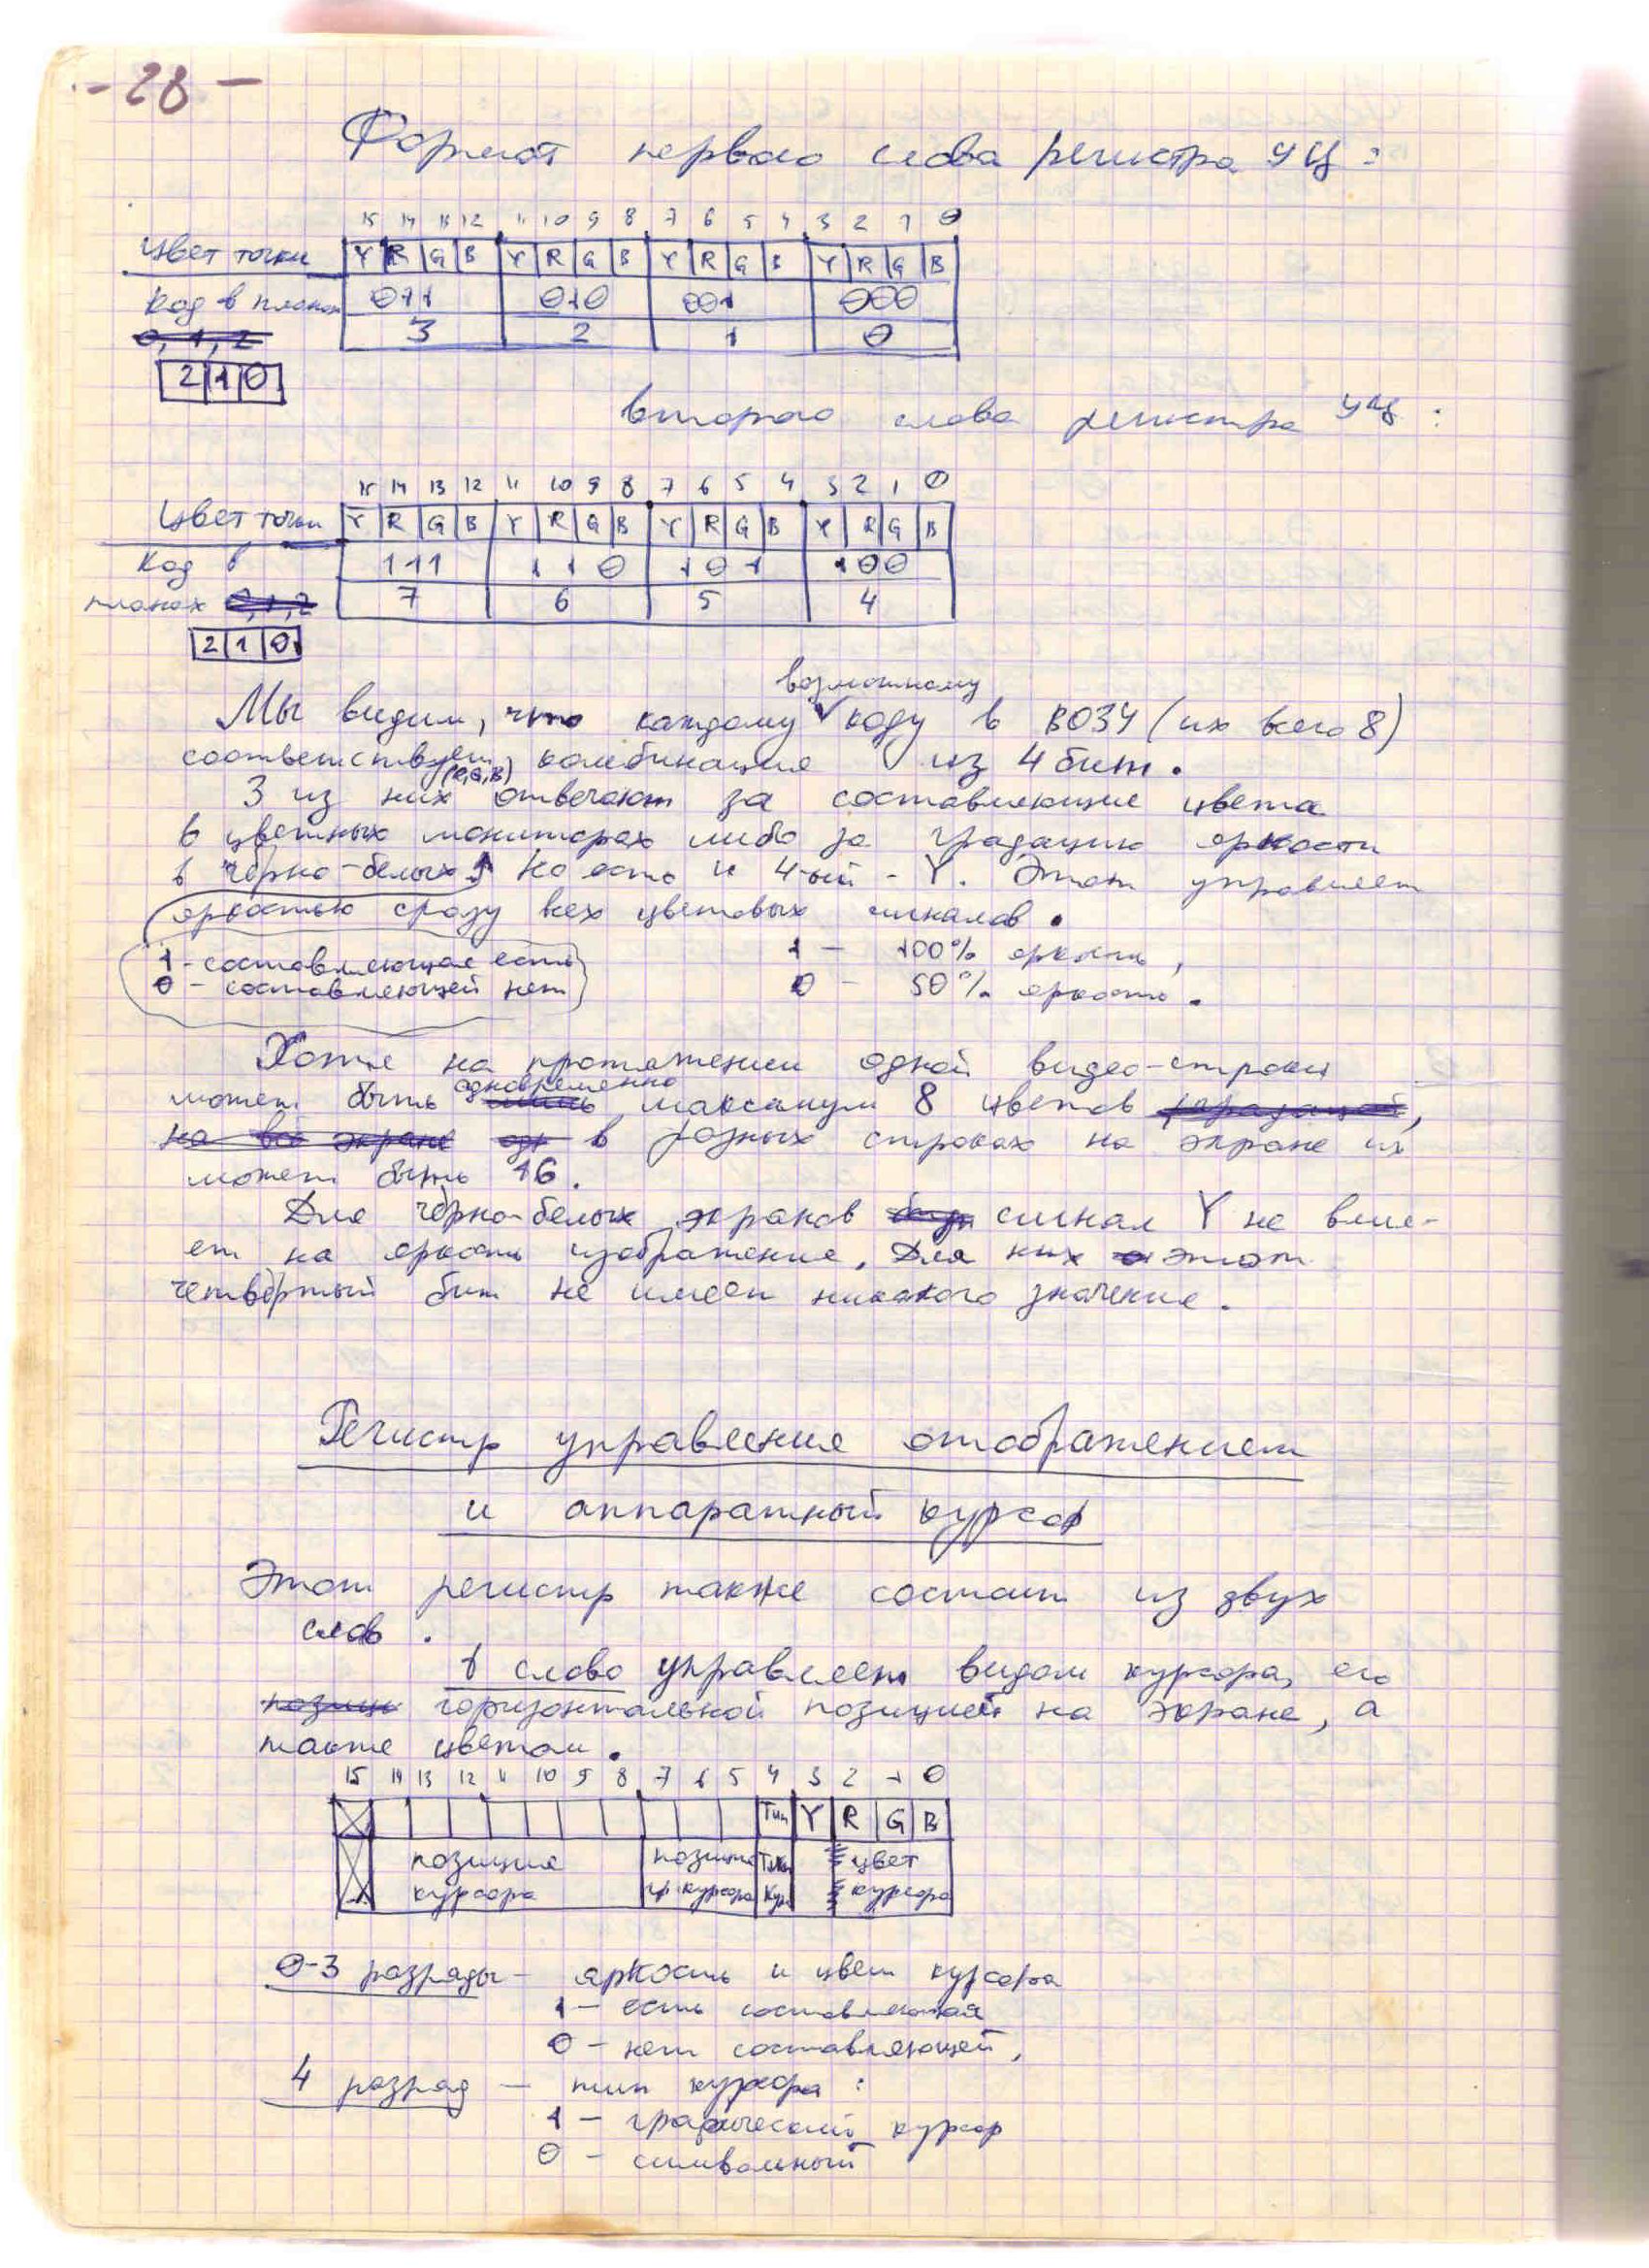 - 28 -
Формат первого слова регистра УЦ:
15 14 13 12 11 10 9 8 7 6 5 4 3 2 1 0
Цвет точки Y R G B Y R G B Y R G B Y R G B
Код в планах 011 010 001 000
0, 1, 2 3 2 1 0
2 1 0
второго слова регистра УЦ:
15 14 13 12 11 10 9 8 7 6 5 4 3 2 1 0
Цвет точки Y R G B Y R G B Y R G B Y R G B
Код в 111 110 101 100
планах 0,1,2 7 6 5 4
2 1 0
возможному
Мы видим, что каждому коду в ВОЗУ (их всего 8)
соответствует комбинация из 4 бит.
(R,G,B)
3 из них отвечают за составляющие цвета
в цветных мониторах либо за градацию яркости
в чёрно-белых. Но есть и 4-ый - Y. Этот управляет
яркостью сразу всех цветовых сигналов.
1 - составляющая есть 1 - 100% яркость,
0 - составляющей нет 0 - 50% яркость.
Хотя на протяжении одной видео-строки
одновременно
может быть лишь максимум 8 цветов,
на всё экране в разных строках на экране их
может быть 16.
Для чёрно-белых экранов сигнал Y не влия-
ет на яркость изображения. Для них этот
четвёртый бит не имеет никакого значения.
Регистр управления отображением
и аппаратный курсор
Этот регистр также состоит из двух
слов.
1 слово управляет видом курсора, его
позици горизонтальной позицией на экране, а
также цветом.
15 14 13 12 11 10 9 8 7 6 5 4 3 2 1 0
Тип Y R G B
позиция позиция Тип цвет
курсора гр. курсора Кур курсора
0-3 разряды - яркость и цвет курсора
1 - есть составляющая
0 - нет составляющей,
4 разряд - тип курсора:
1 - графический курсор
0 - символьный